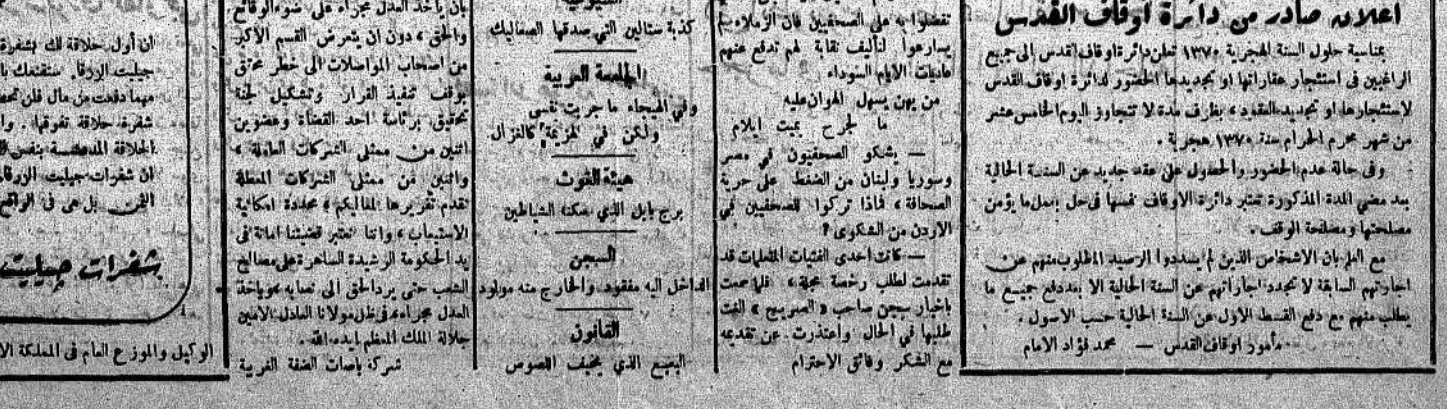 اعلان صادر من دائرة اوقاف القدس
بمناسبة حلول السنة الهجرية ١٣٧٠ تعلن دائرة اوقاف القدس الى جميع
الراغبين في استئجار عقاراتها او تجديدها الحضور لدائرة اوقاف القدس
لاستئجارها او تجديد العقود، بظرف مدة لا تتجاوز اليوم الخامس عشر
من شهر محرم الحرام سنة ١٣٧٠ هجرية .
وفي حالة عدم الحضور والحصول على عقد جديد عن السنة الحالية
بعد مضي المدة المذكورة تعتبر دائرة الاوقاف نفسها في حل بعمل ما يؤمن
مصلحتها ومصلحة الوقف .
مع العلم بان الاشخاص الذين لم يسددوا الرصيد المطلوب منهم عن
اجارتهم السابقة لا تجدد اجاراتهم عن السنة الحالية الا بعد دفع جميع ما
يطلب منهم مع دفع القسط الاول عن السنة الحالية حسب الاصول .
مأمور اوقاف القدس — محمد فؤاد الامام
تفضلوا به على الصحفيين فان الزملاء لم
يسارعوا لتأليف نقابة لهم تدفع عنهم
عاديات الايام السوداء
من يهن يسهل الهوان عليه
ما لجرح بميت ايلام
— يشكو الصحفيون في مصر
وسوريا ولبنان من الضغط على حرية
الصحافة ، فاذا تركوا للصحفيين في
الاردن من الشكوى ؟
— كانت احدى الفتيات المتعلمات قد
تقدمت لطلب رخصة مجلة ، فلما سمعت
باخبار سجن صاحب « الصريح » الغت
طلبها في الحال واعتذرت عن تقديمه
مع الشكر وفائق الاحترام
الشيوعية
كذبة ستالين التي صدقها الصعاليك
الجامعة العربية
وفي الهيجاء ما جربت نفسي
ولكن في الهزيمة كالغزال
هيئة الغوث
برج بابل الذي سكنه الشياطين
السجن
الداخل اليه مفقود والخارج منه مولود
القانون
البعبع الذي يخيف اللصوص
بان يأخذ العدل مجراه على ضوء الوقائع
والحق ، دون ان يتعرض القسم الاكبر
من اصحاب المواصلات الى خطر محقق
بوقف تنفيذ القرار وتشكيل لجنة
تحقيق برئاسة احد القضاة وعضوين
اثنين من ممثلي الشركات العاملة ،
واثنين من ممثلي الشركات المعطلة
تقدم تقريرها لمعاليكم ، محددة امكانية
الاستيعاب ، واننا نعتبر قضيتنا امانة في
يد الحكومة الرشيدة الساهرة على مصالح
الشعب حتى يرد الحق الى نصابه ، ويأخذ
العدل مجراه ، في ظل مولانا العادل الامين
جلالة الملك المعظم ايده الله .
شركة باصات الضفة الغربية
ان أول حلاقة لك بشفرة
جيليت الزرقاء ستقنعك با
مهما دفعت من مال فلن تحصل
شفرة حلاقة تفوقها . وا
الحلاقة المدهشة بنفس
ان شفرات جيليت الزرقاء
الثمن بل هي في الواقع
بشفرات جيليت
الوكيل والموزع العام في المملكة الا